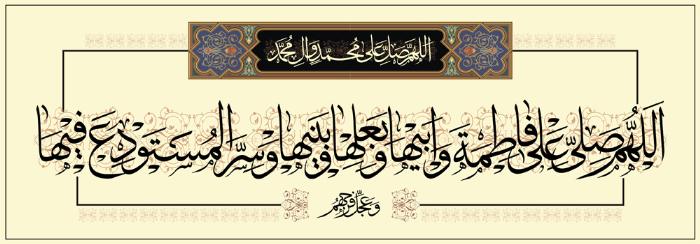 اللهم صل علی محمد وال محمد
اَللّهُمَّ صَلِّ عَلی فاطِمَةَ وَ اَبیها وَ بَعلِها وَ بَنیها وَ سِرِّ المُستَودَعِ فیها
وعجل فرجهم